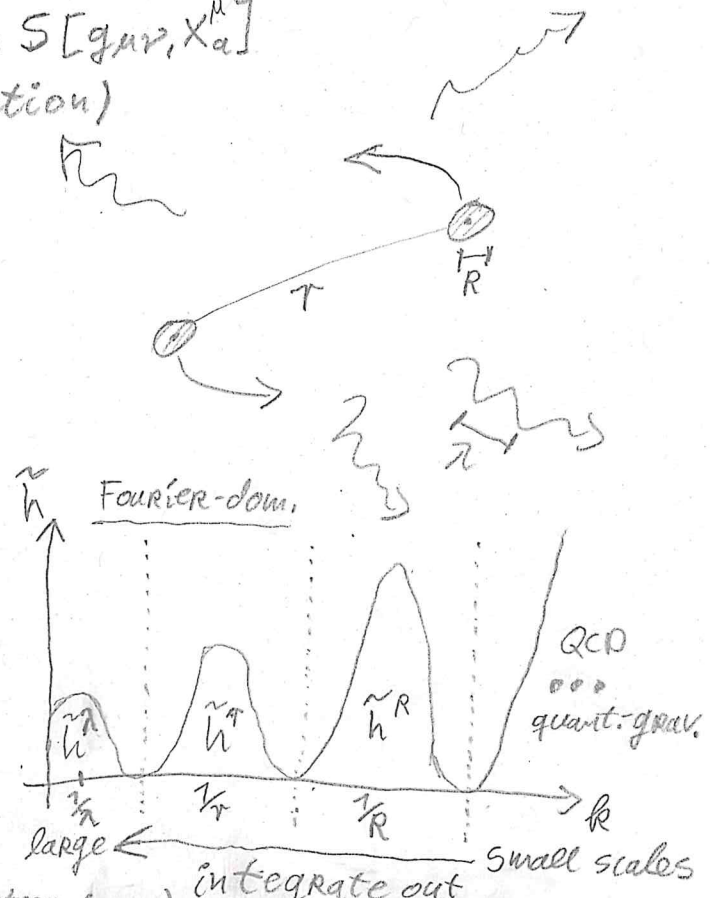 S[gμν, Xₐ^μ]
tion)
R
r
λ
h̃
Fourier-dom.
QCD
...
quant.-grav.
h̃^λ
h̃^r
h̃^R
1/λ
1/r
1/R
k
large
small scales
integrate out